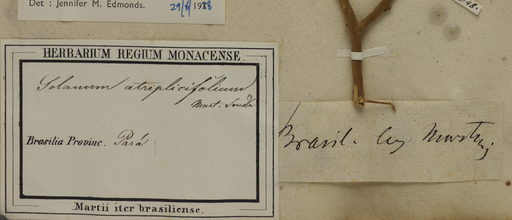 Det : Jennifer M. Edmonds. 29/6/1978
HERBARIUM REGIUM MONACENSE.
Solanum atriplicifolium
Mart. Sendt.
Brasilia Provinc. Pará
Martii iter brasiliense.
Brasil.